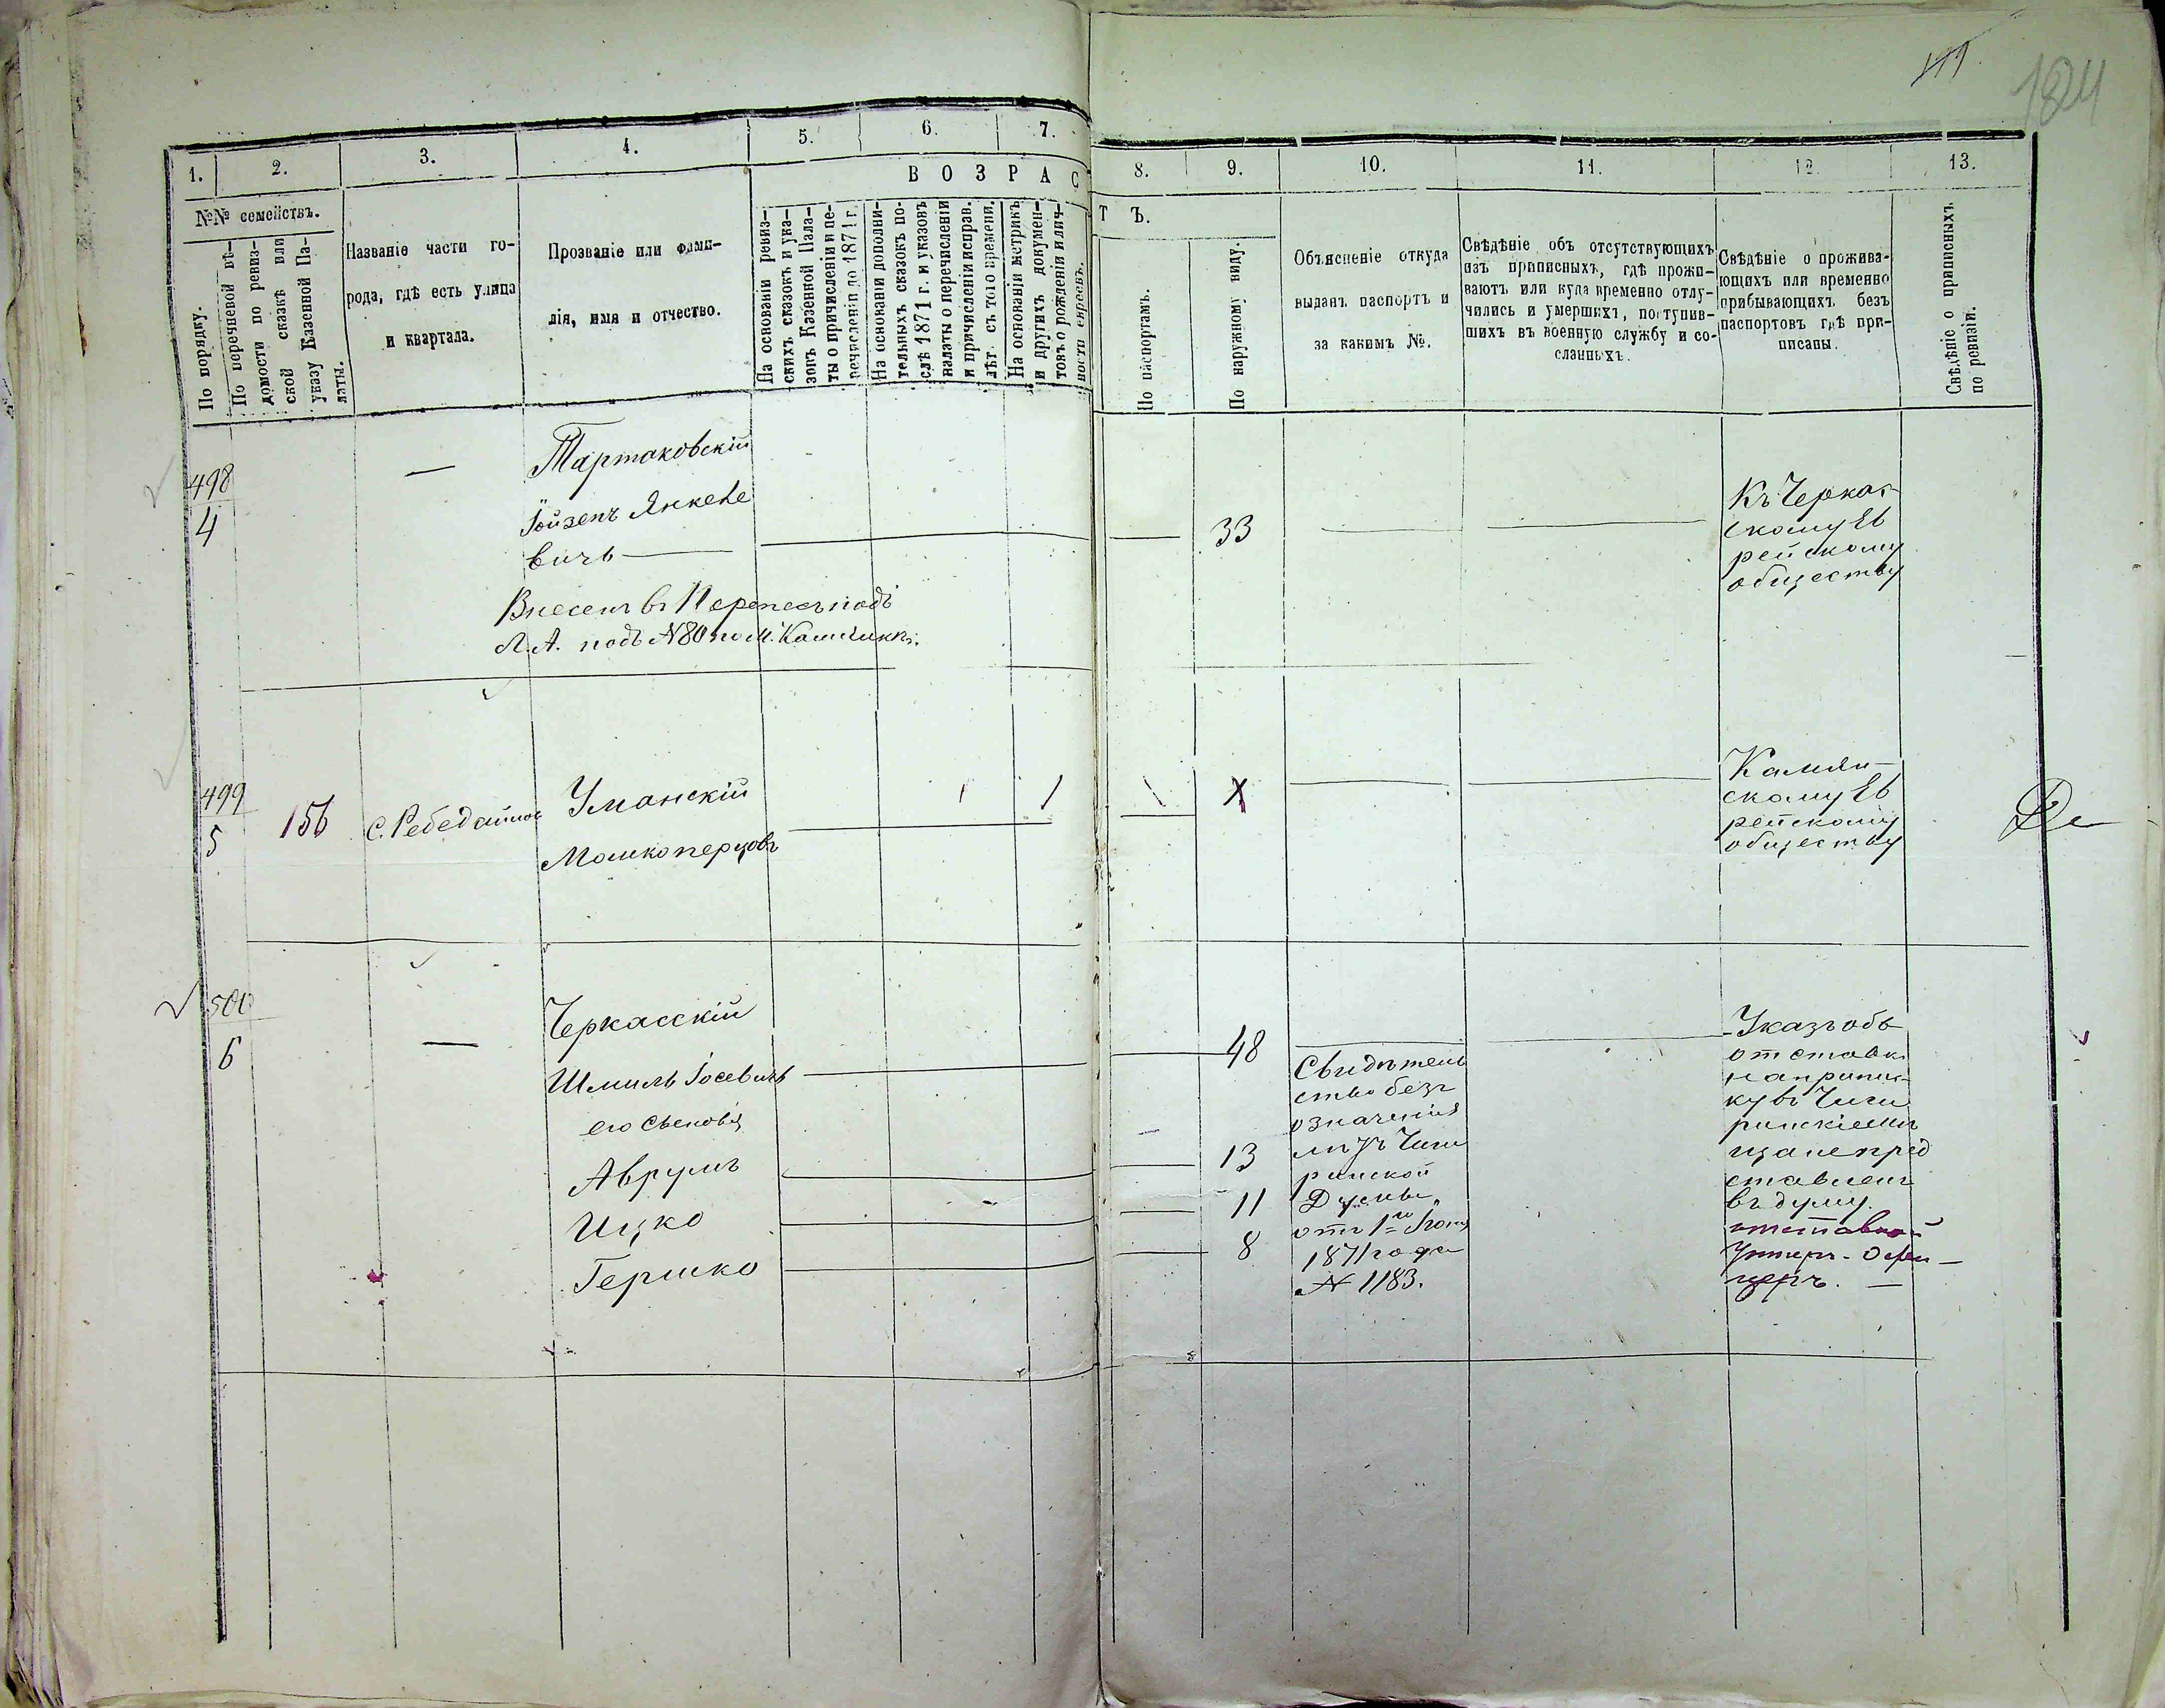 191
1824
1.
2.
3.
4.
5.
6.
7.
8.
9.
10.
11.
12.
13.
№№ семействъ.
По порядку.
По перечневой вѣ-
домости по ревиз-
ской сказкѣ или
указу Казенной Па-
латы.
Названіе части го-
рода, гдѣ есть улица
и квартала.
Прозваніе или фами-
лія, имя и отчество.
ВОЗРАС
Т Ъ.
На основаніи ревиз-
скихъ сказокъ и ука-
зовъ Казенной Пала-
ты о причисленіи и пе-
речисленіи до 1871 г.
На основаніи дополни-
тельныхъ сказокъ по-
слѣ 1871 г. и указовъ
палаты о перечисленіи
и причисленіи исправ.
лѣт. съ того времени.
На основаніи метрикъ
и другихъ докумен-
товъ о рожденіи и лич-
ности евреевъ.
По паспортамъ.
По наружному виду.
Объясненіе откуда
выданъ паспортъ и
за какимъ №.
Свѣдѣніе объ отсутствующихъ
изъ приписныхъ, гдѣ прожи-
ваютъ или куда временно отлу-
чились и умершихъ, поступив-
шихъ въ военную службу и со-
сланныхъ.
Свѣдѣніе о прожива-
ющихъ или временно
прибывающихъ безъ
паспортовъ гдѣ при-
писаны.
Свѣдѣніе о приписныхъ
по ревизіи.
498
4
—
Тартаковскій
Іойзепъ Янкеле
вичъ —
33
Къ Черкас-
скому Ев
рейскому
обществу
Внесенъ въ
Л. А. подъ №80 по м.
499
5
156
Уманскій
Мошко перцовъ
1
1
1
X
Камян-
скому Ев
рейскому
обществу
500
6
—
Черкасскій
Шмиль Іосевичъ
его сыновья
Аврумъ
Ицко
Гершко
48
13
11
8
Свидѣтель
ство безъ
означенія
лѣтъ Чиги
ринской
Думы
отъ 1го
1871 года
№ 1183.
Указъ объ
отставкѣ
на припис-
ку въ Чиги
ринскіе мѣ
щане пред
ставленъ
въ думу.
отставной
Унтеръ-Офи-
церъ. —